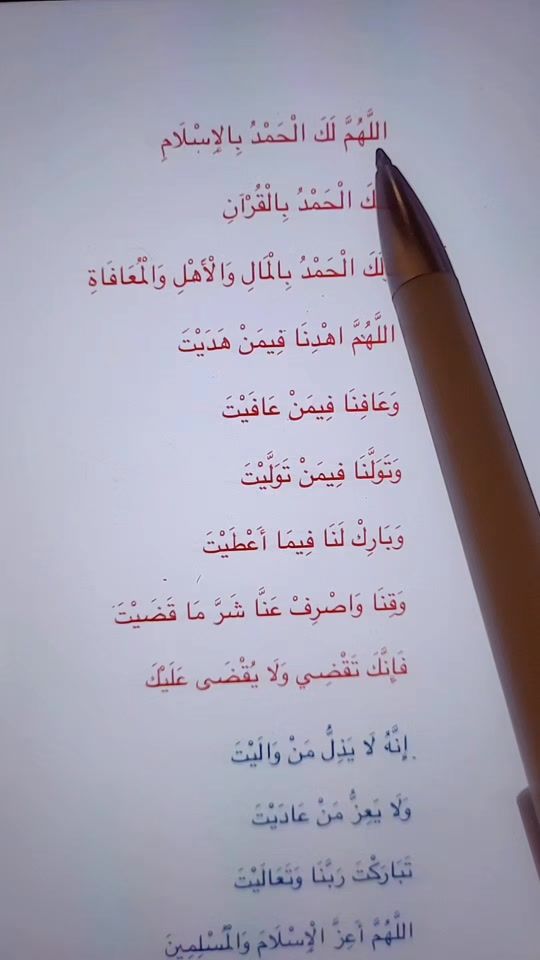 اللَّهُمَّ لَكَ الْحَمْدُ بِالإِسْلَامِ
الْحَمْدُ بِالْقُرْآنِ
لَكَ الْحَمْدُ بِالْمَالِ وَالْأَهْلِ وَالْمُعَافَاةِ
اللَّهُمَّ اهْدِنَا فِيمَنْ هَدَيْتَ
وَعَافِنَا فِيمَنْ عَافَيْتَ
وَتَوَلَّنَا فِيمَنْ تَوَلَّيْتَ
وَبَارِكْ لَنَا فِيمَا أَعْطَيْتَ
وَقِنَا وَاصْرِفْ عَنَّا شَرَّ مَا قَضَيْتَ
فَإِنَّكَ تَقْضِي وَلَا يُقْضَى عَلَيْكَ
إِنَّهُ لَا يَذِلُّ مَنْ وَالَيْتَ
وَلَا يَعِزُّ مَنْ عَادَيْتَ
تَبَارَكْتَ رَبَّنَا وَتَعَالَيْتَ
اللَّهُمَّ أَعِزَّ الْإِسْلَامَ وَالْمُسْلِمِينَ